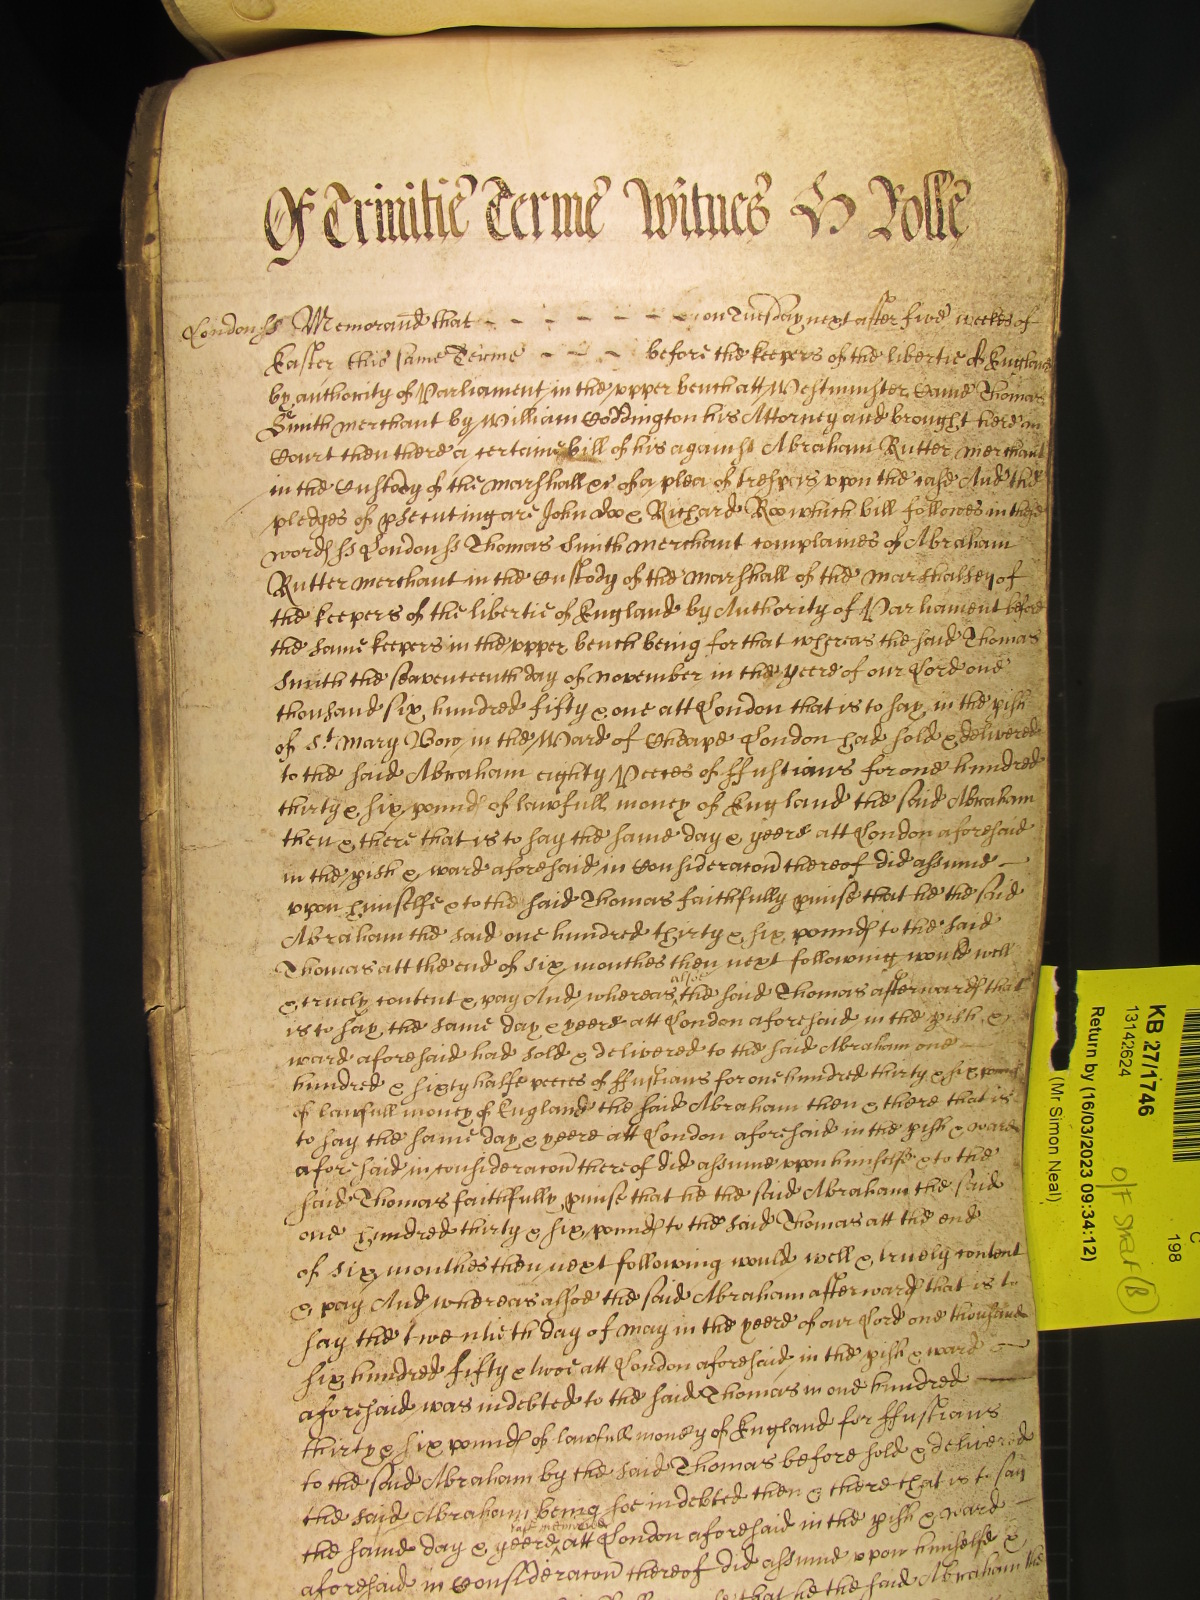 Of Trinitie Terme Witnes H Rolle
London ss Memorand that - - - - - - - on Tuesday next after five weekes of
Easter this same Terme - - - before the keepers of the libertie of England
by authority of Parliament in the upper bench att Westminster Came Thomas
Smith merchant by William Coddington his Attorney and brought here in
Court then there a certaine bill of his against Abraham Rutter merchant
in the Custody of the marshall &c of a plea of trespas upon the case And the
pledges of psecuting are John Doo & Richard Roo which bill followes in these
words ss London ss Thomas Smith merchant complaines of Abraham
Rutter merchant in the Custody of the marshall of the marshalsey of
the keepers of the libertie of England by Authority of Parliament before
the same keepers in the upper bench being for that whereas the said Thomas
Smith the seaventeenth day of november in the yeere of our Lord one
thousand six hundred fifty & one att London that is to say in the pish
of St Mary Bow in the Ward of Cheape London had sold & delivered
to the said Abraham eighty Peeces of ffustians for one hundred
thirty & six pounds of lawfull money of England the said Abraham
then & there that is to say the same day & yeere att London aforesaid
in the pish & ward aforesaid in Consideracon thereof did assume
upon himselfe & to the said Thomas faithfully pmise that he the said
Abraham the said one hundred thirty & six pounds to the said
Thomas att the end of six monthes then next following would well
& truely content & pay And whereas alsoe the said Thomas afterwards that
is to say the same day & yeere att London aforesaid in the pish &
ward aforesaid had sold & delivered to the said Abraham one
hundred & sixty halfe peeces of ffustians for one hundred thirty & six pounds
of lawfull money of England the said Abraham then & there that is
to say the same day & yeere att London aforesaid in the pish & ward
aforesaid in consideracon thereof did assume upon himselfe & to the
said Thomas faithfully pmise that he the said Abraham the said
one hundred thirty & six pounds to the said Thomas att the end
of six monthes then next following would well & truely content
& pay And whereas alsoe the said Abraham afterwards that is to
say the twentieth day of may in the yeere of our Lord one thousand
six hundred fifty & twoe att London aforesaid in the pish & ward
aforesaid was indebted to the said Thomas in one hundred
thirty & six pounds of lawfull money of England for ffustians
to the said Abraham by the said Thomas before sold & delivered
the said Abraham being soe indebted then & there that is to say
the same day & yeere last mencioned att London aforesaid in the pish & ward
aforesaid in Consideracon thereof did assume upon himselfe &
that he the said Abraham the
KB 27/1746
13142624
Return by (16/03/2023 09:34:12)
(Mr Simon Neal)
C
198